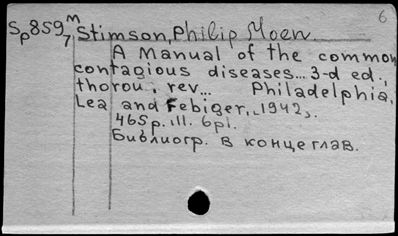 6
Sp859/7 m Stimson, Philip Moen.
A Manual of the common
contagious diseases... 3-d ed.,
thorou. rev... Philadelphia,
Lea and Febiger, 1942.
465 p. ill. 6 pl.
Библиогр. в конце глав.